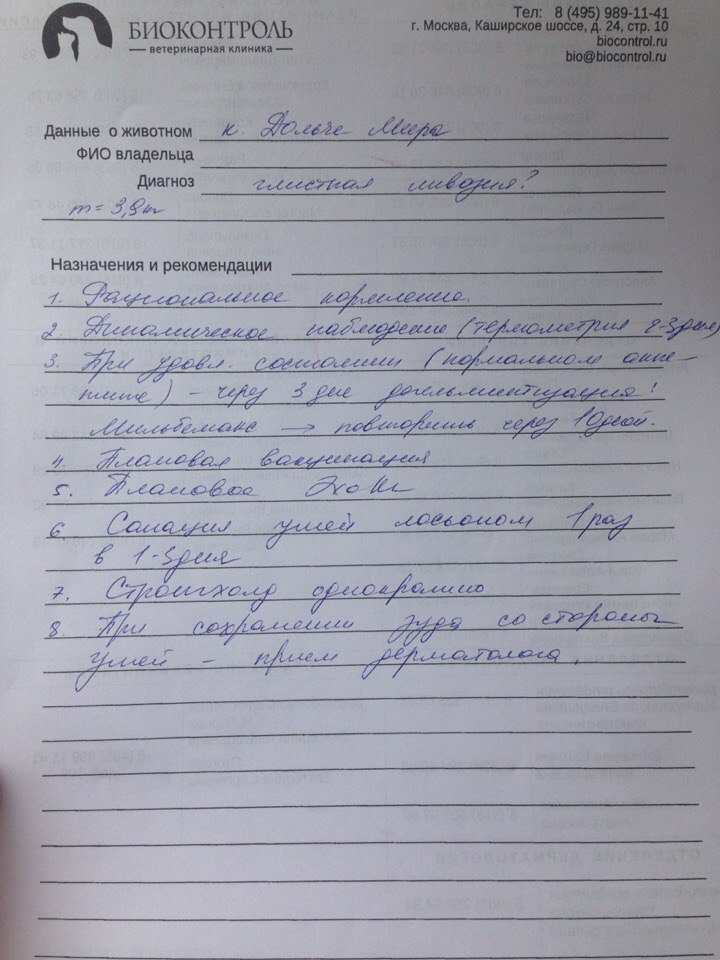 БИОКОНТРОЛЬ
ветеринарная клиника
Тел: 8 (495) 989-11-41
г. Москва, Каширское шоссе, д. 24, стр. 10
biocontrol.ru
bio@biocontrol.ru
Данные о животном к. Дольче Мира
ФИО владельца
Диагноз глистная инвазия?
m = 3,9кг
Назначения и рекомендации
1. Рациональное кормление.
2. Динамическое наблюдение (термометрия 2-3дня)
3. При удовл. состоянии (нормальном аппе-
тите) - через 3 дня дегельминтизация!
Мильбемакс → повторить через 10дней.
4. Плановая вакцинация
5. Плановое ЭхоКг
6 Санация ушей лосьоном 1раз
в 1-3дня
7. Стронгхолд однократно
8. При сохранении зуда со стороны
ушей - прием дерматолога.
ОТДЕЛЕНИЕ ДЕРМАТОЛОГИИ